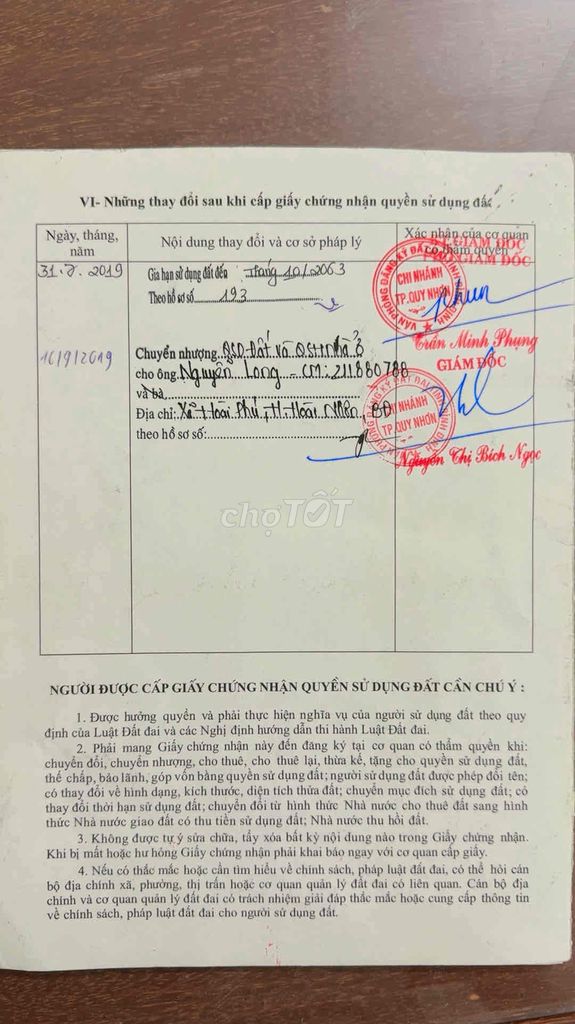 VI- Những thay đổi sau khi cấp giấy chứng nhận quyền sử dụng đất
Ngày, tháng, năm
Nội dung thay đổi và cơ sở pháp lý
Xác nhận của cơ quan có thẩm quyền
31.7.2019
Gia hạn sử dụng đất đến tháng 10/2063
Theo hồ sơ số 193
GIÁM ĐỐC
GIÁM ĐỐC
VĂN PHÒNG ĐĂNG KÝ ĐẤT ĐAI TỈNH BÌNH ĐỊNH
CHI NHÁNH
TP.QUY NHƠN
Trần Minh Phụng
16/9/2019
Chuyển nhượng QSD Đất và QSH Nhà ở
cho ông Nguyễn Long - CM: 211880788
và bà
Địa chỉ: Xã Hoài Phú, H. Hoài Nhơn, BĐ
theo hồ sơ số:
GIÁM ĐỐC
VĂN PHÒNG ĐĂNG KÝ ĐẤT ĐAI TỈNH BÌNH ĐỊNH
CHI NHÁNH
TP.QUY NHƠN
Nguyễn Thị Bích Ngọc
chợTỐT
NGƯỜI ĐƯỢC CẤP GIẤY CHỨNG NHẬN QUYỀN SỬ DỤNG ĐẤT CẦN CHÚ Ý :
1. Được hưởng quyền và phải thực hiện nghĩa vụ của người sử dụng đất theo quy
định của Luật Đất đai và các Nghị định hướng dẫn thi hành Luật Đất đai.
2. Phải mang Giấy chứng nhận này đến đăng ký tại cơ quan có thẩm quyền khi:
chuyển đổi, chuyển nhượng, cho thuê, cho thuê lại, thừa kế, tặng cho quyền sử dụng đất,
thế chấp, bảo lãnh, góp vốn bằng quyền sử dụng đất; người sử dụng đất được phép đổi tên;
có thay đổi về hình dạng, kích thước, diện tích thửa đất; chuyển mục đích sử dụng đất; có
thay đổi thời hạn sử dụng đất; chuyển đổi từ hình thức Nhà nước cho thuê đất sang hình
thức Nhà nước giao đất có thu tiền sử dụng đất; Nhà nước thu hồi đất.
3. Không được tự ý sửa chữa, tẩy xóa bất kỳ nội dung nào trong Giấy chứng nhận.
Khi bị mất hoặc hư hỏng Giấy chứng nhận phải khai báo ngay với cơ quan cấp giấy.
4. Nếu có thắc mắc hoặc cần tìm hiểu về chính sách, pháp luật đất đai, có thể hỏi cán
bộ địa chính xã, phường, thị trấn hoặc cơ quan quản lý đất đai có liên quan. Cán bộ địa
chính và cơ quan quản lý đất đai có trách nhiệm giải đáp thắc mắc hoặc cung cấp thông tin
về chính sách, pháp luật đất đai cho người sử dụng đất.